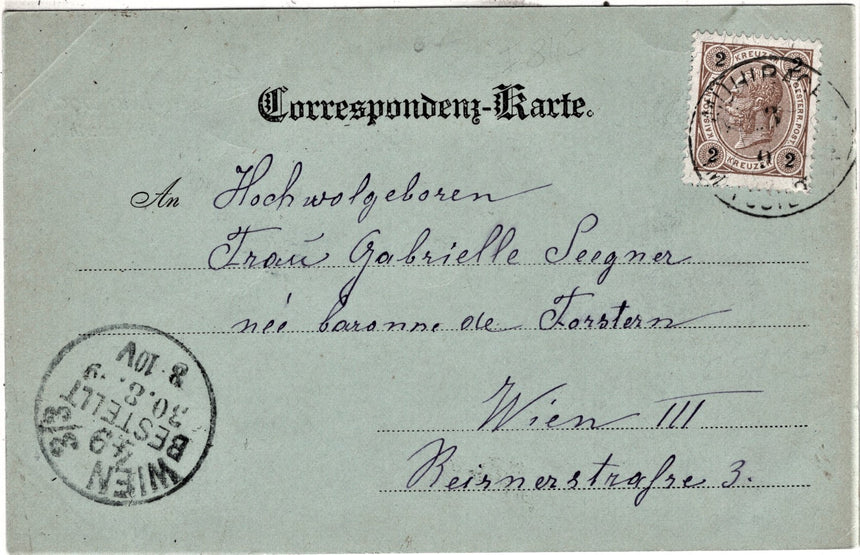 Correspondenz-Karte.
An Hochwolgeboren
Frau Gabrielle Seegner
née baronne de Forstern
Wien III
Reisnerstraße 3.
2 KREUZER 2
KAIS.
OESTERR. POST.
2 KREUZER 2
WIEN
3/3
49
BESTELLT
30.8.
8-10V